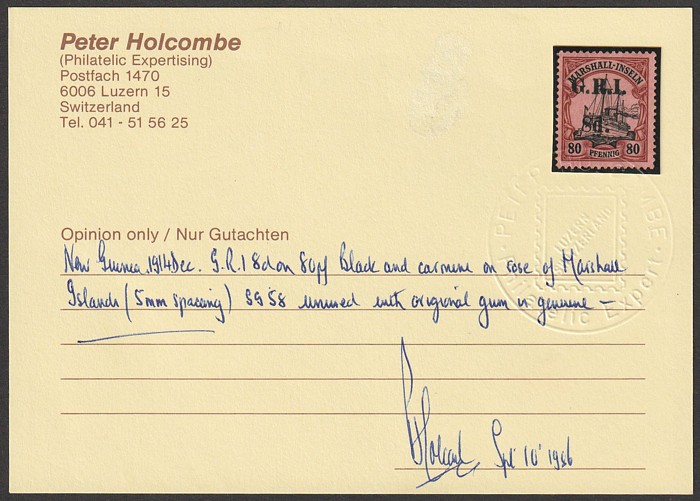 Peter Holcombe
(Philatelic Expertising)
Postfach 1470
6006 Luzern 15
Switzerland
Tel. 041 - 51 56 25
MARSHALL-INSELN
G.R.I.
8d.
80 PFENNIG 80
Opinion only / Nur Gutachten
New Guinea, 1914 Dec. G.R.I 8d on 80pf black and carmine on rose of Marshall
Islands (5mm spacing) SG 58 unused with original gum is genuine —
PETER HOLCOMBE
LUZERN
SWITZERLAND
Philatelic Expert
Holcombe 10 1986